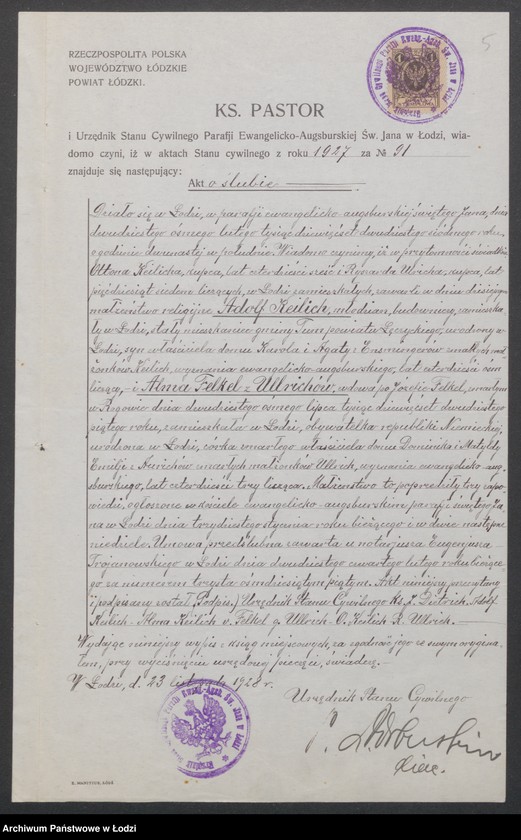 5
RZECZPOSPOLITA POLSKA
WOJEWÓDZTWO ŁÓDZKIE
POWIAT ŁÓDZKI.
KS. PASTOR
i Urzędnik Stanu Cywilnego Parafji Ewangelicko-Augsburskiej Św. Jana w Łodzi, wia-
domo czyni, iż w aktach Stanu cywilnego z roku 1927 za № 91
znajduje się następujący:
Akt o ślubie
Działo się w Łodzi, w parafji ewangelicko-augsburskiej świętego Jana, dnia
dwudziestego ósmego lutego tysiąc dziewięćset dwudziestego siódmego roku
o godzinie dwunastej w południe. Wiadomo czynimy, iż w przytomności świadków
Ottona Keilicha, kupca, lat czterdzieści sześć i Ryszarda Ulricha, kupca, lat
pięćdziesiąt siedem liczących, w Łodzi zamieszkałych, zawarte w dniu dzisiejszym
małżeństwo religijne Adolf Keilich, młodzian, budowniczy, zamieszka-
ły w Łodzi, stały mieszkaniec gminy Tum powiatu Łęczyckiego, urodzony w
Łodzi, syn właściciela domu Karola i Agaty z Ensmingerów małż.
żonków Keilich, wyznania ewangelicko-augsburskiego, lat czterdzieści osm
liczący, - i Alma Felkel z Ullrichów, wdowa po Józefie Felkel, zmarłym
w Rogowie dnia dwudziestego ósmego lipca tysiąc dziewięćset dwudziestego
piątego roku, zamieszkała w Łodzi, obywatelka republiki Niemieckiej,
urodzona w Łodzi, córka zmarłego właściciela domu Dominika i Matyldy
Emilji z zmarłych małżonków Ullrich, wyznania ewangelicko-aug-
sburskiego, lat czterdzieści trzy licząca. Małżeństwo to poprzedziły trzy zapo-
wiedzi, ogłoszone w kościele ewangelicko-augsburskim parafji świętego Ja-
na w Łodzi dnia trzydziestego stycznia roku bieżącego i w dwie następne
niedziele. Umowa przedślubna zawarta u notarjusza Eugenjusza
Trojanowskiego w Łodzi dnia dwudziestego czwartego lutego roku bieżące-
go za numerem trzysta osiemdziesiątym piątym. Akt niniejszy przeczytany
i podpisany został. Podpis.) Urzędnik Stanu Cywilnego Ks. J. Dietrich. Adolf
Keilich - Alma Keilich v. Felkel g. Ullrich - O. Keilich R. Ullrich. -
Wydając niniejszy wypis z ksiąg miejscowych, za zgodność jego ze swym orygina-
łem, przy wyciśnięciu urzędowej pieczęci, świadczę. -
W Łodzi, d. 23 listopada 1928 r.
Urzędnik Stanu Cywilnego
Archiwum Państwowe w Łodzi